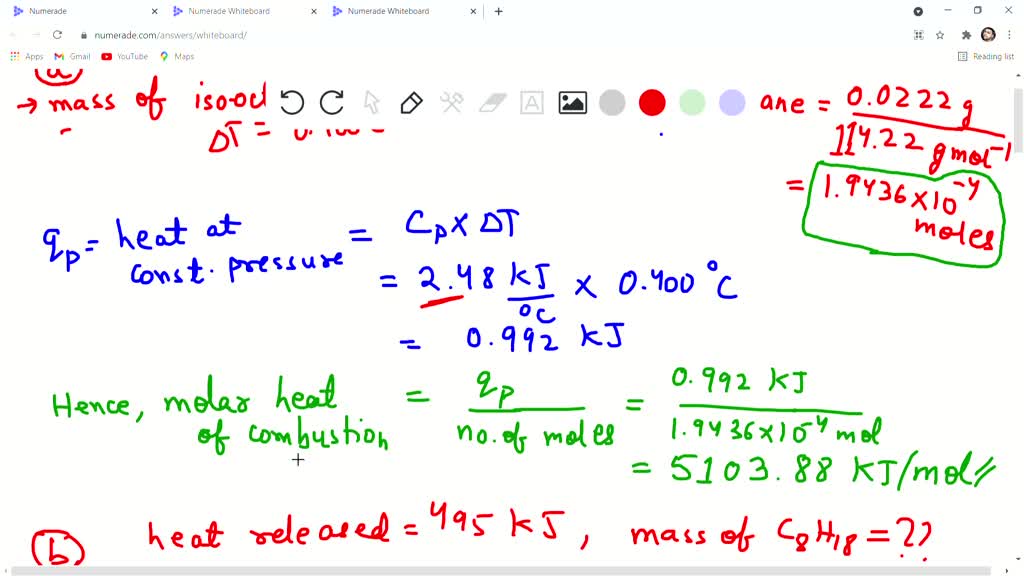 Numerade
Numerade Whiteboard
Numerade Whiteboard
numerade.com/answers/whiteboard/
Apps Gmail YouTube Maps Reading list
(a)
→ mass of iso-oct ane = 0.0222 g
114.22 g mol⁻¹
ΔT = 0.400
= 1.9436×10⁻⁴
moles
qp = heat at = Cp × ΔT
const. pressure
= 2.48 KJ × 0.400 °C
°C
= 0.992 KJ
Hence, molar heat = qp = 0.992 KJ
of combustion no. of moles 1.9436×10⁻⁴ mol
= 5103.88 KJ/mol
(b) heat released = 495 KJ, mass of C₈H₁₈ = ??